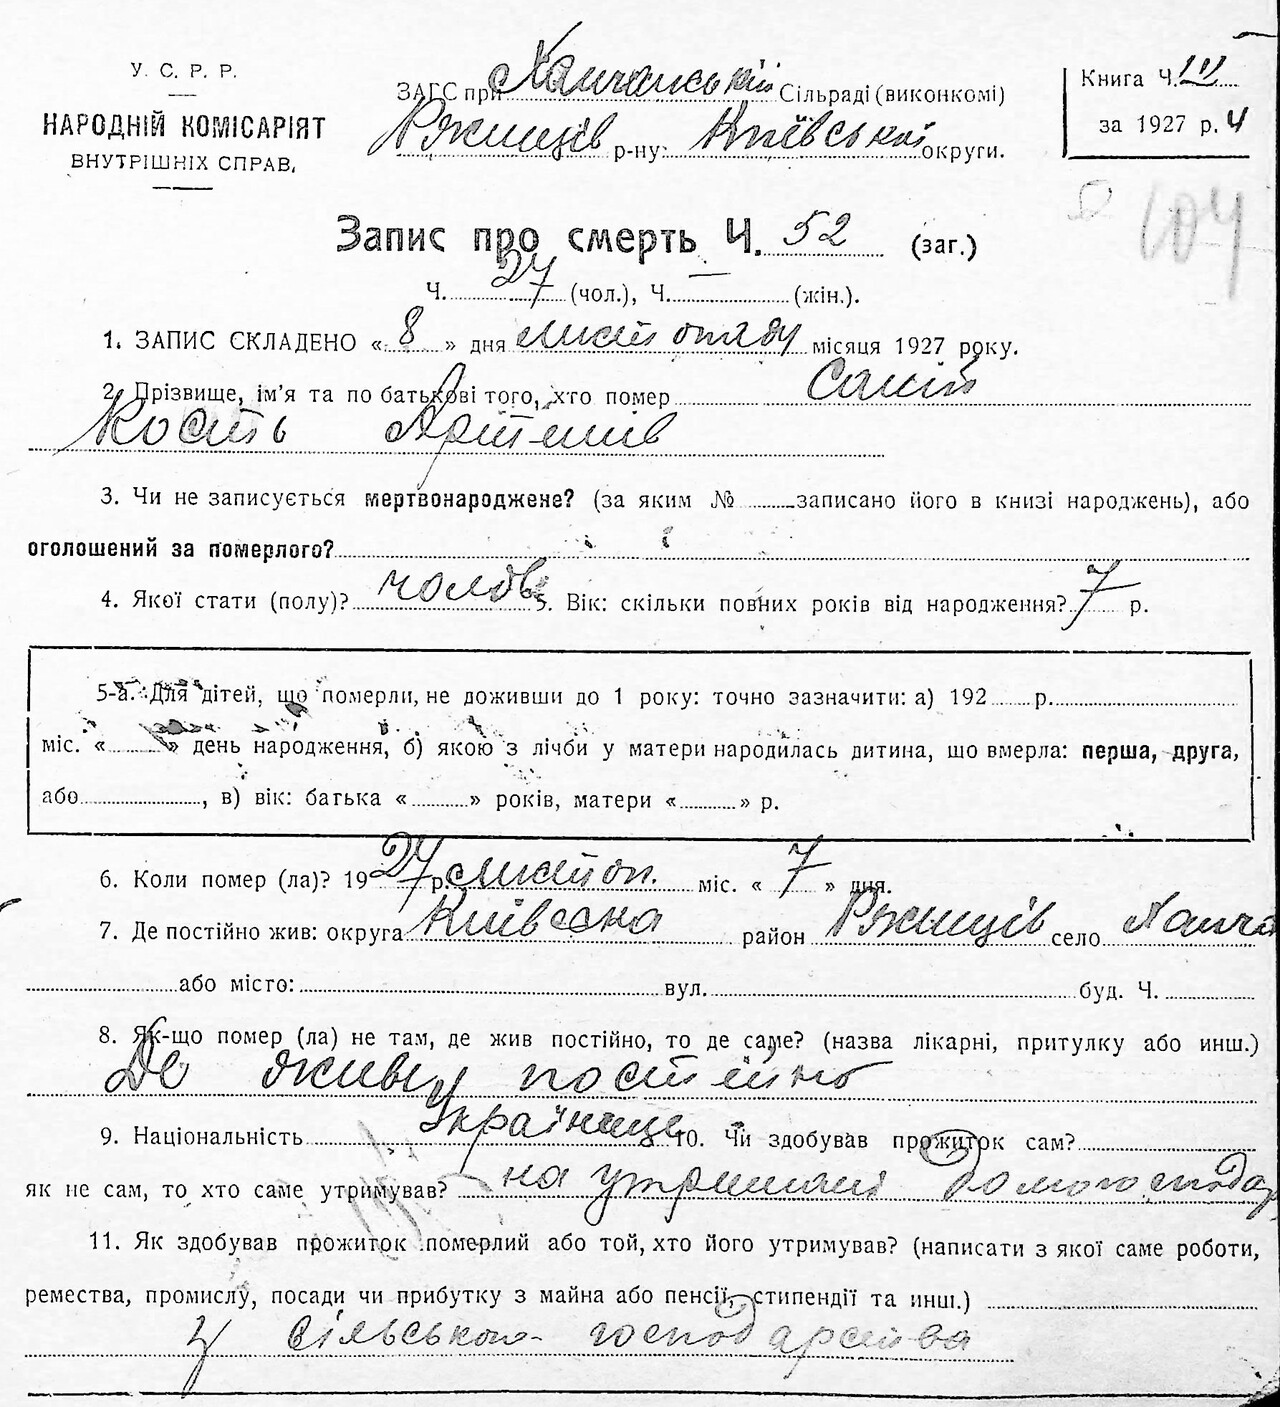 У. С. Р. Р.
НАРОДНІЙ КОМІСАРІЯТ
ВНУТРІШНІХ СПРАВ.
ЗАГС при Ханчанській Сільраді (виконкомі)
Ржищів р-ну: Київської округи.
Книга Ч. III
за 1927 р. Ч
104
Запис про смерть Ч. 52 (заг.)
Ч. 27 (чол.), Ч. — (жін.).
1. ЗАПИС СКЛАДЕНО « 8 » дня листопаду місяця 1927 року.
2. Прізвище, ім'я та по батькові того, хто помер
Кость Артемів
3. Чи не записується мертвонароджене? (за яким № записано його в книзі народжень), або
оголошений за померлого?
4. Якої стати (полу)? чолов 5. Вік: скільки повних років від народження? 7 р.
5-а. Для дітей, що померли, не доживши до 1 року: точно зазначити: а) 192 р.
міс. « » день народження, б) якою з лічби у матери народилась дитина, що вмерла: перша, друга,
або , в) вік: батька « » років, матери « » р.
6. Коли помер (ла)? 1927 р. листоп. міс. « 7 » дня.
7. Де постійно жив: округа Київсска район Ржищів село Ханча
або місто: вул. буд. Ч.
8. Як-що помер (ла) не там, де жив постійно, то де саме? (назва лікарні, притулку або инш.)
Де живу постійно
9. Національність Українец 10. Чи здобував прожиток сам?
як не сам, то хто саме утримував? на утримані домогосподар
11. Як здобував прожиток померлий або той, хто його утримував? (написати з якої саме роботи,
ремества, промислу, посади чи прибутку з майна або пенсії, стипендії та инш.)
У сільського господарства